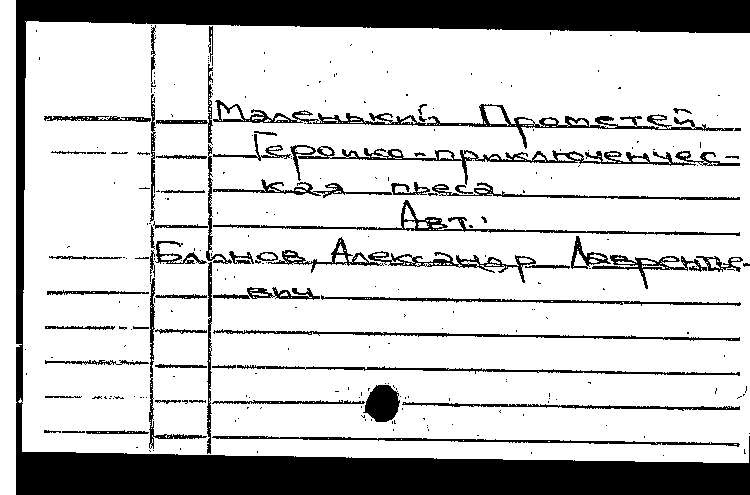 Маленький Прометей.
Героико-приключенчес-
кая пьеса.
Авт.:
Блинов, Александр Лавренте-
вич